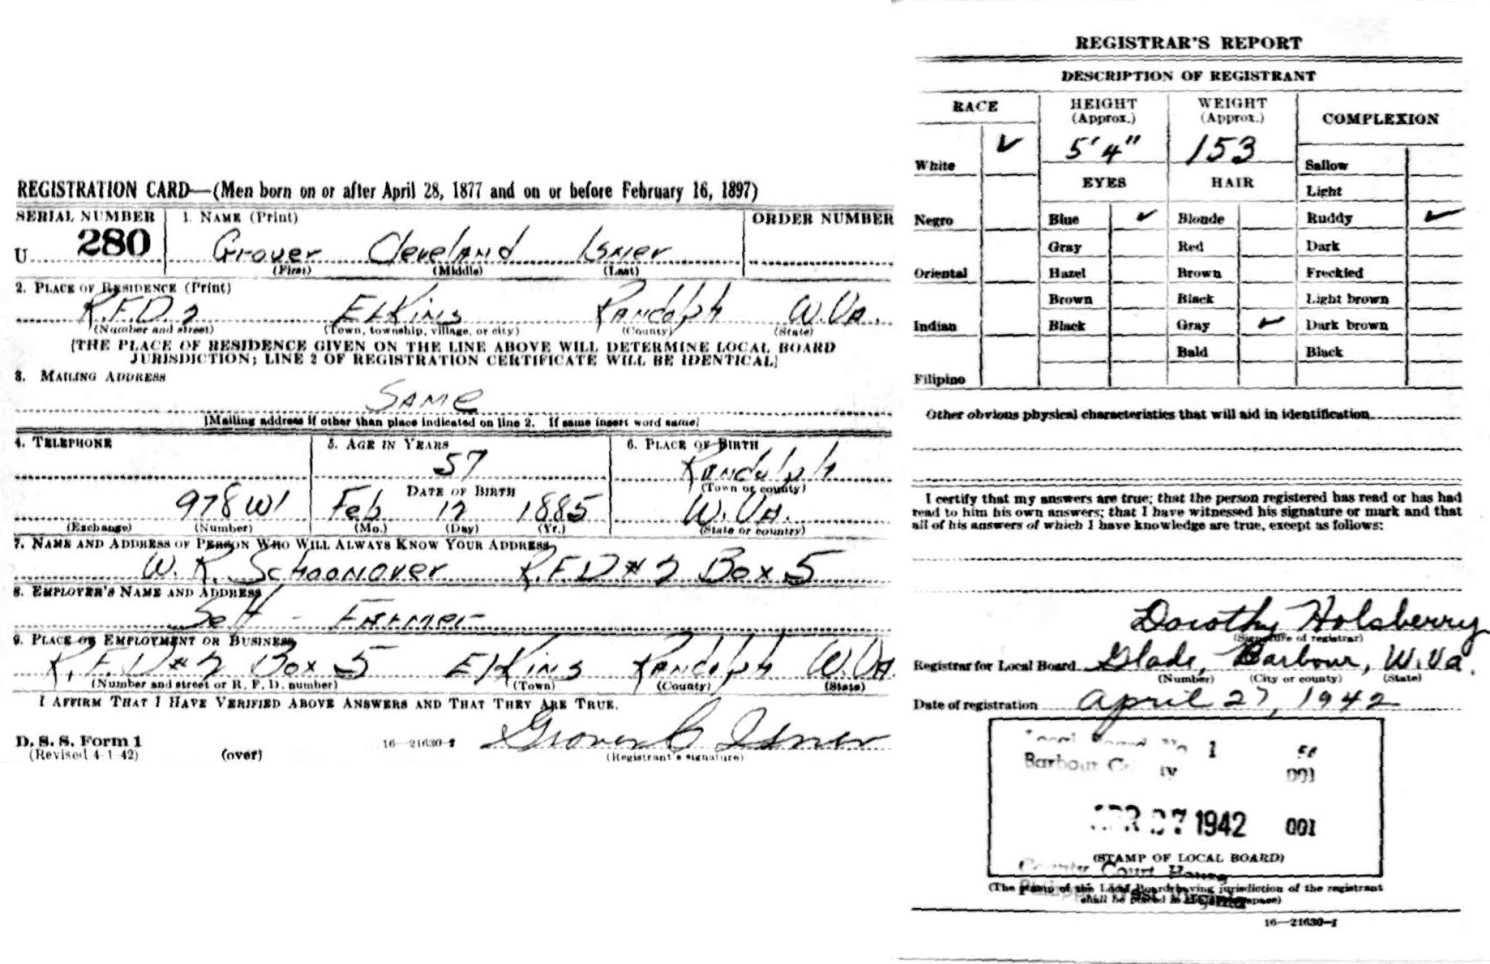 REGISTRATION CARD—(Men born on or after April 28, 1877 and on or before February 16, 1897)
SERIAL NUMBER
1. NAME (Print)
ORDER NUMBER
U 280
Grover Cleveland Isner
(First) (Middle) (Last)
2. PLACE OF RESIDENCE (Print)
R.F.D 2 Elkins Randolph W.Va.
(Number and street) (Town, township, village, or city) (County) (State)
[THE PLACE OF RESIDENCE GIVEN ON THE LINE ABOVE WILL DETERMINE LOCAL BOARD
JURISDICTION; LINE 2 OF REGISTRATION CERTIFICATE WILL BE IDENTICAL]
3. MAILING ADDRESS
SAME
[Mailing address if other than place indicated on line 2. If same insert word same]
4. TELEPHONE
5. AGE IN YEARS
6. PLACE OF BIRTH
57
Randolph
DATE OF BIRTH
(Town or county)
978W1
Feb 12 1885
W.Va.
(Exchange) (Number)
(Mo.) (Day) (Yr.)
(State or country)
7. NAME AND ADDRESS OF PERSON WHO WILL ALWAYS KNOW YOUR ADDRESS
W. R. Schoonover R.F.D # 2 Box 5
8. EMPLOYER'S NAME AND ADDRESS
Self - Farmer
9. PLACE OF EMPLOYMENT OR BUSINESS
R.F.D # 2 Box 5 Elkins Randolph W.Va.
(Number and street or R. F. D. number) (Town) (County) (State)
I AFFIRM THAT I HAVE VERIFIED ABOVE ANSWERS AND THAT THEY ARE TRUE.
Grover C Isner
D. S. S. Form 1
(Revised 4-1-42) (over) 16—21630-1 (Registrant's signature)
REGISTRAR'S REPORT
DESCRIPTION OF REGISTRANT
RACE
HEIGHT (Approx.)
WEIGHT (Approx.)
COMPLEXION
White ✓
5'4"
153
Sallow
EYES
HAIR
Light
Negro
Blue ✓
Blonde
Ruddy ✓
Gray
Red
Dark
Oriental
Hazel
Brown
Freckled
Brown
Black
Light brown
Indian
Black
Gray ✓
Dark brown
Bald
Black
Filipino
Other obvious physical characteristics that will aid in identification
I certify that my answers are true; that the person registered has read or has had
read to him his own answers; that I have witnessed his signature or mark and that
all of his answers of which I have knowledge are true, except as follows:
Dorothy Holsberry
(Signature of registrar)
Registrar for Local Board Glade, Barbour, W.Va.
(Number) (City or county) (State)
Date of registration April 27, 1942
Local Board No 1
Barbour
001
APR 27 1942 001
(STAMP OF LOCAL BOARD)
County Court House
West Virginia
(The stamp of the Local Board having jurisdiction of the registrant
shall be placed in the above space)
16—21630-1